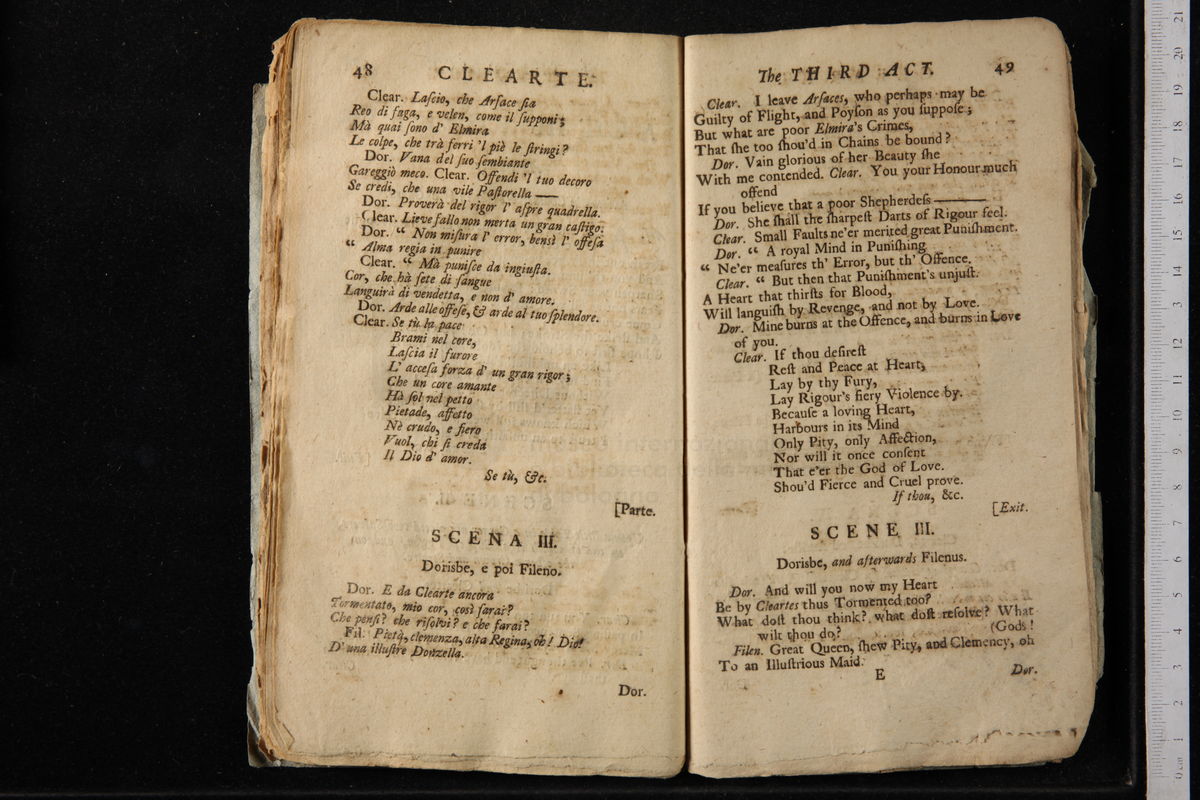 48 CLEARTE.
Clear. Laſcio, che Arſace ſia
Reo di fuga, e velen, come il ſupponi;
Mà quai ſono d' Elmira
Le colpe, che trà ferri 'l piè le ſtringi?
Dor. Vana del ſuo ſembiante
Gareggiò meco. Clear. Offendi 'l tuo decoro
Se credi, che una vile Paſtorella ——
Dor. Proverà del rigor l' aſpre quadrella.
Clear. Lieve fallo non merta un gran caſtigo.
Dor. “ Non miſura l' error, bensì l' offeſa
“ Alma regia in punire
Clear. “ Mà puniſce da ingiuſta.
Cor, che hà ſete di ſangue
Languirà di vendetta, e non d' amore.
Dor. Arde alle offeſe, & arde al tuo ſplendore.
Clear. Se tù la pace
Brami nel core,
Laſcia il furore
L' acceſa forza d' un gran rigor;
Che un core amante
Hà ſol nel petto
Pietade, affetto
Nè crudo, e fiero
Vuol, chi ſi creda
Il Dio d' amor.
Se tù, &c.
[Parte.
SCENA III.
Dorisbe, e poi Fileno.
Dor. E da Clearte ancora
Tormentato, mio cor, così ſarai?
Che penſi? che riſolvi? e che farai?
Fil. Pietà, clemenza, alta Regina, oh! Dio!
D' una illuſtre Donzella.
Dor.
The THIRD ACT. 49
Clear. I leave Arſaces, who perhaps may be
Guilty of Flight, and Poyſon as you ſuppoſe;
But what are poor Elmira's Crimes,
That ſhe too ſhou'd in Chains be bound?
Dor. Vain glorious of her Beauty ſhe
With me contended. Clear. You your Honour much
offend
If you believe that a poor Shepherdeſs ———
Dor. She ſhall the ſharpeſt Darts of Rigour feel.
Clear. Small Faults ne'er merited great Puniſhment.
Dor. “ A royal Mind in Puniſhing
“ Ne'er meaſures th' Error, but th' Offence.
Clear. “ But then that Puniſhment's unjuſt.
A Heart that thirſts for Blood,
Will languiſh by Revenge, and not by Love.
Dor. Mine burns at the Offence, and burns in Love
of you.
Clear. If thou deſireſt
Reſt and Peace at Heart,
Lay by thy Fury,
Lay Rigour's fiery Violence by.
Becauſe a loving Heart,
Harbours in its Mind
Only Pity, only Affection,
Nor will it once conſent
That e'er the God of Love.
Shou'd Fierce and Cruel prove.
If thou, &c.
[Exit.
SCENE III.
Dorisbe, and afterwards Filenus.
Dor. And will you now my Heart
Be by Cleartes thus Tormented too?
What doſt thou think? what doſt reſolve? What
wilt thou do? (Gods!
Filen. Great Queen, ſhew Pity, and Clemency, oh
To an Illuſtrious Maid.
E Dor.